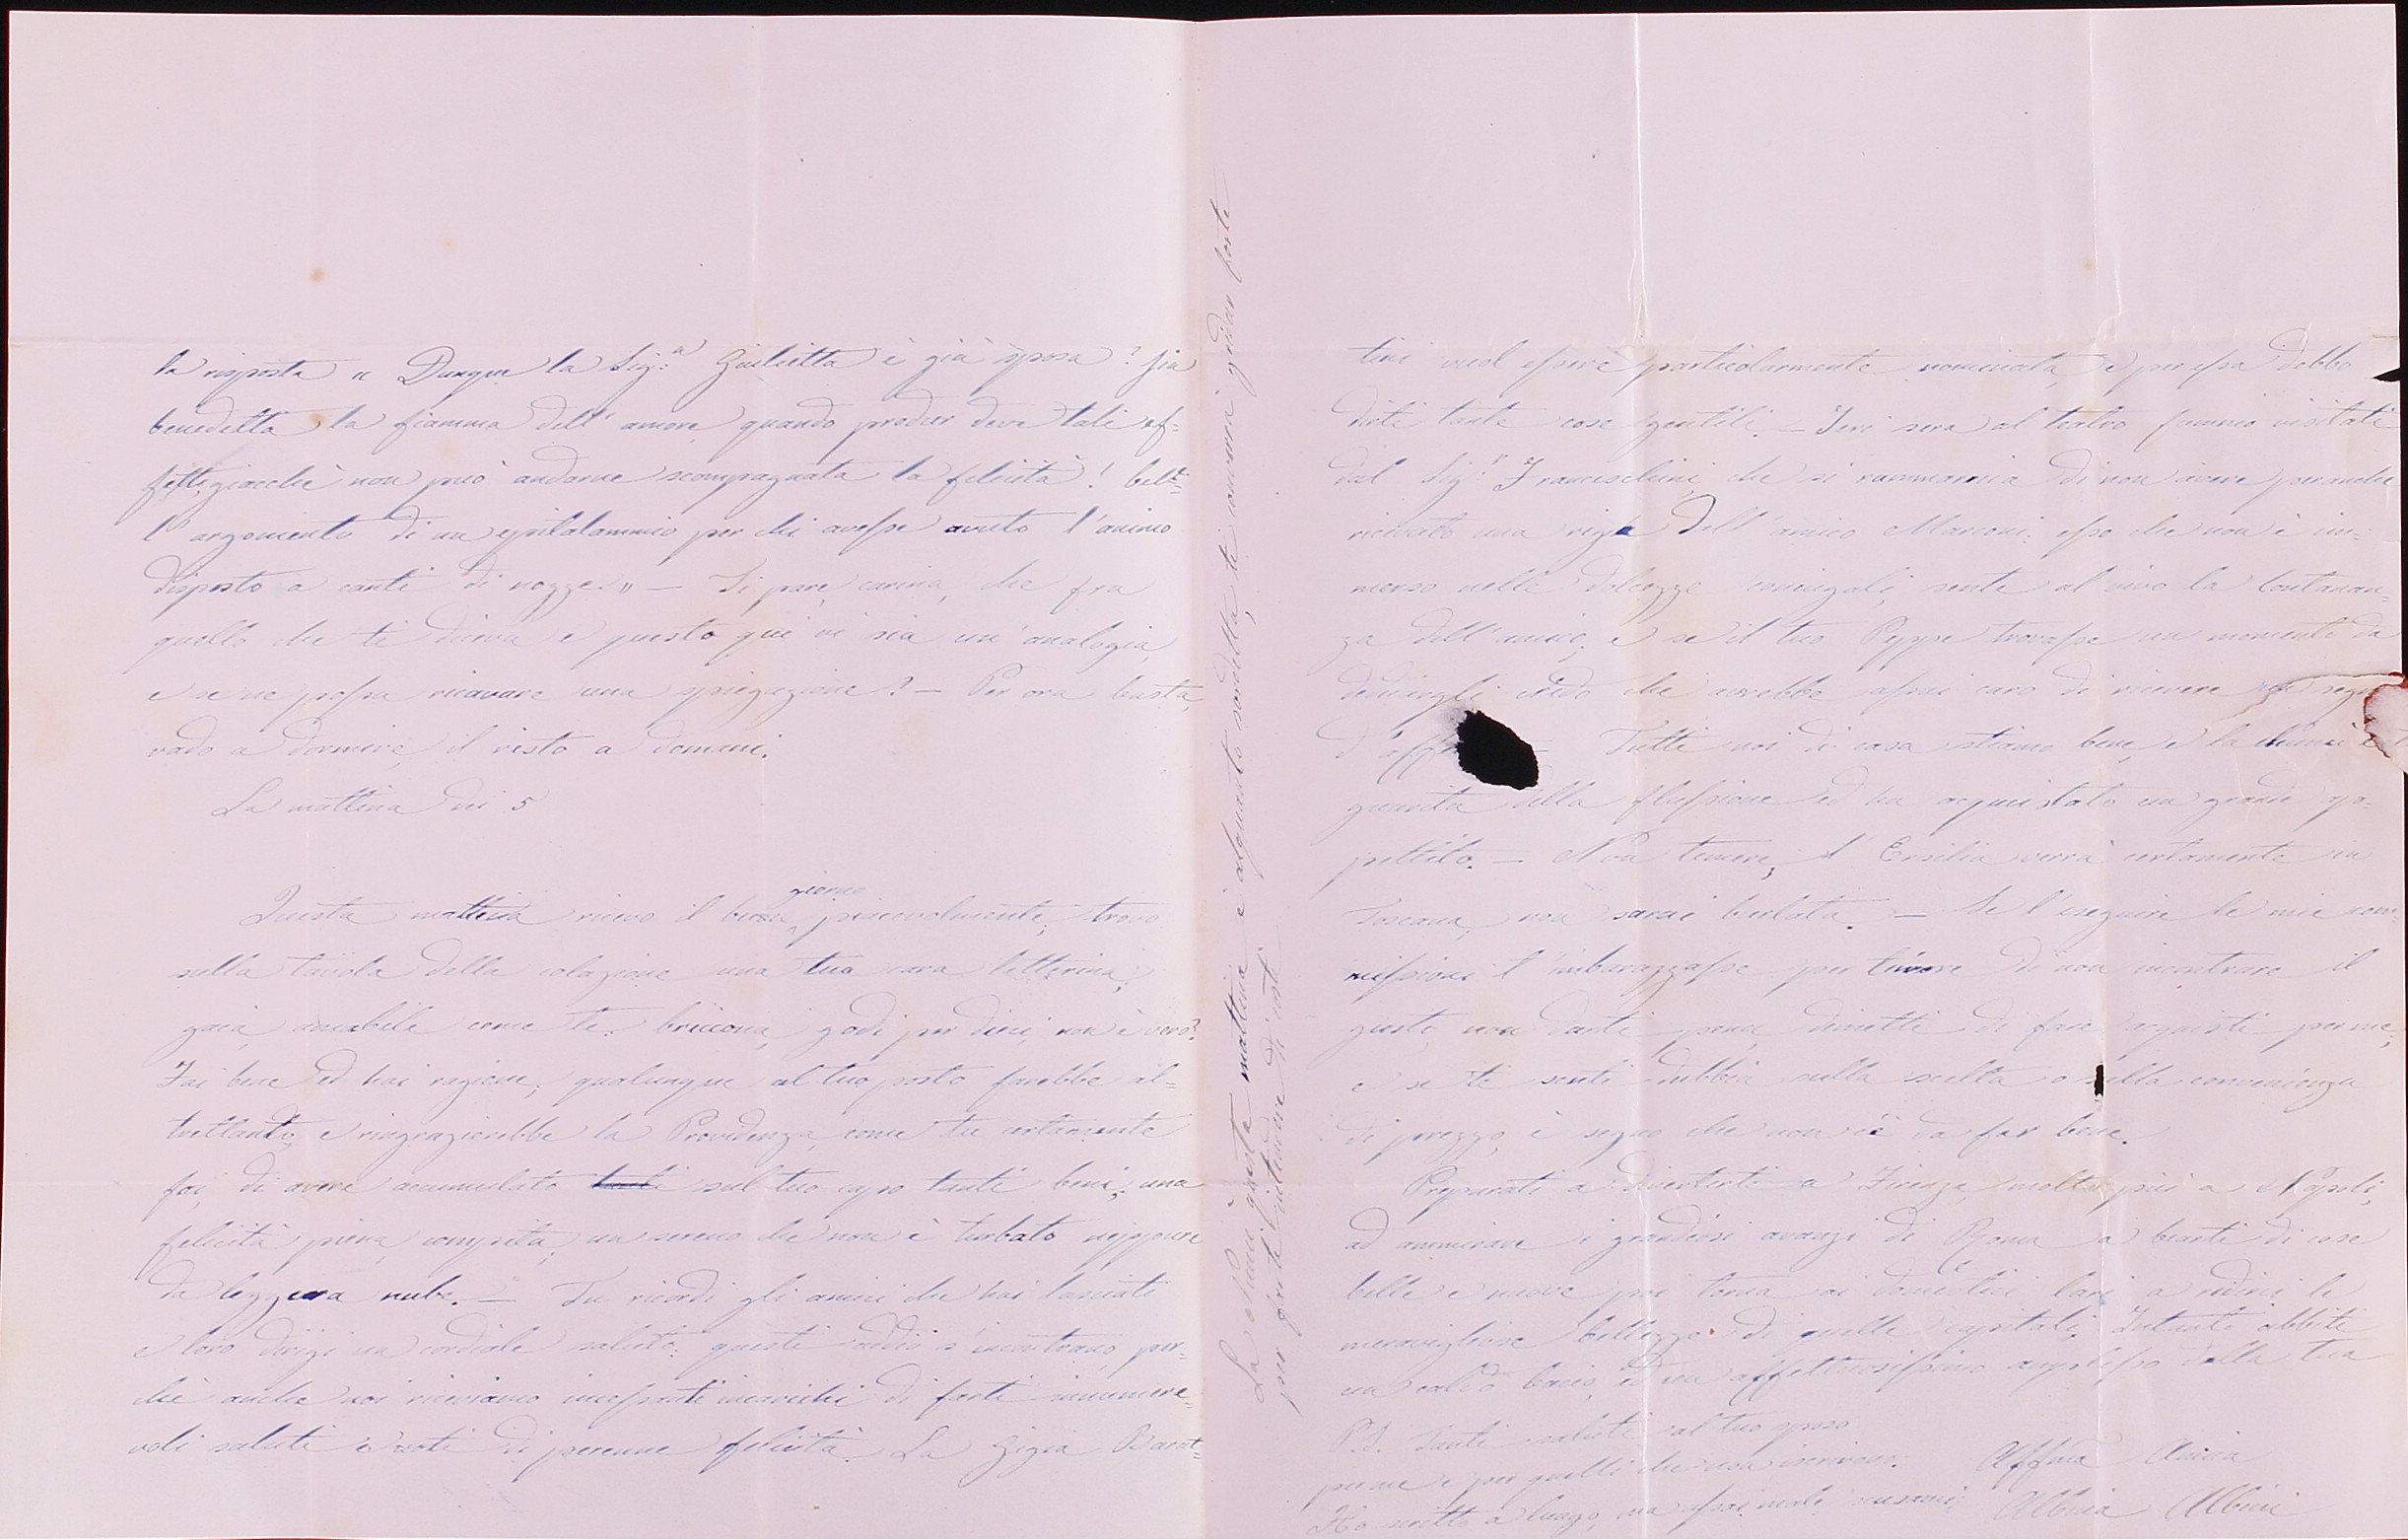 la risposta " Dunque la Sig.ª Giulietta è già sposa? sia
benedetta la fiamma dell'amore quando produr deve tali ef=
fetti, giacchè non può andarne scompagnata la felicità! bell
l'argomento di un epitalammio per chi avesse avuto l'animo
disposto a canti di nozze" — Ti pare, carina, che fra
quello che ti diceva e questo qui vi sia un'analogia,
e se ne possa ricavare una spiegazione? — Per ora basta,
vado a dormire, il resto a domani.
La mattina dei 5
giorno
Questa mattina ricevo il buon piacevolmente; trovo
sulla tavola della colazione una tua cara letterina,
gaia, amabile come te: briccona, godi per dieci, non è vero?
Fai bene ed hai ragione; qualunque al tuo posto farebbe al=
trettanto, e ringrazierebbe la Providenza, come tu certamente
fai, di avere accumulato tanti sul tuo capo tanti beni; una
felicità piena, compita, un sereno che non è turbato neppure
da leggiera nube. — Tu ricordi gli amici che hai lasciati
e loro dirigi un cordiale saluto: questi addii s'incontrano, per=
chè anche noi riceviamo incessanti incarichi di farti innumere=
voli saluti e voti di perenne felicità. La Gigia Barat=
tini vuol essere particolarmente nominata, e per essa debbo
dirti tante cose gentili. — Ieri sera al teatro fummo visitati
dal Sig.r Franceschini, che si rammarica di non avere peranche
ricevuto una riga dell'amico Marconi: esso che non è im=
merso nelle dolcezze coniugali, sente al vivo la lontanan=
za dell'amico, e se il tuo Peppe trovasse un momento da
dedicargli credo che avrebbe assai caro di ricevere
d'aff — Tutti noi di casa stiamo bene, e la
guarita della flussione ed ha acquistato un grande ap=
petito. — Non temere, l'Ersilia verrà certamente in
Toscana, non sarai burlata. — Se l'eseguire le mie com=
missioni t'imbarazzasse per timore di non incontrare il
gusto, non darti pena, dimetti di fare acquisti per me;
e se ti senti dubbia sulla scelta o sulla convenienza
di prezzo, è segno che non c'è da far bene.
Preparati a divertirti a Firenze, molto più a Napoli,
ad ammirare i grandiosi avanzi di Roma a bearti di cose
belle e nuove poi torna ai domestici lari a ridirci le
meravigliose bellezze di quelle capitali. Intanto abbiti
un caldo bacio, ed un affettuosissimo amplesso dalla tua
P.S. Tanti saluti al tuo sposo
per me e per quelli che non scrivono.
Affma Amica
Ho scritto a lungo, ma assai male, scusami.
Albina Albini
La questa mattina è alquanto sordella, ti converrà gridar forte
per farti intendere di costì